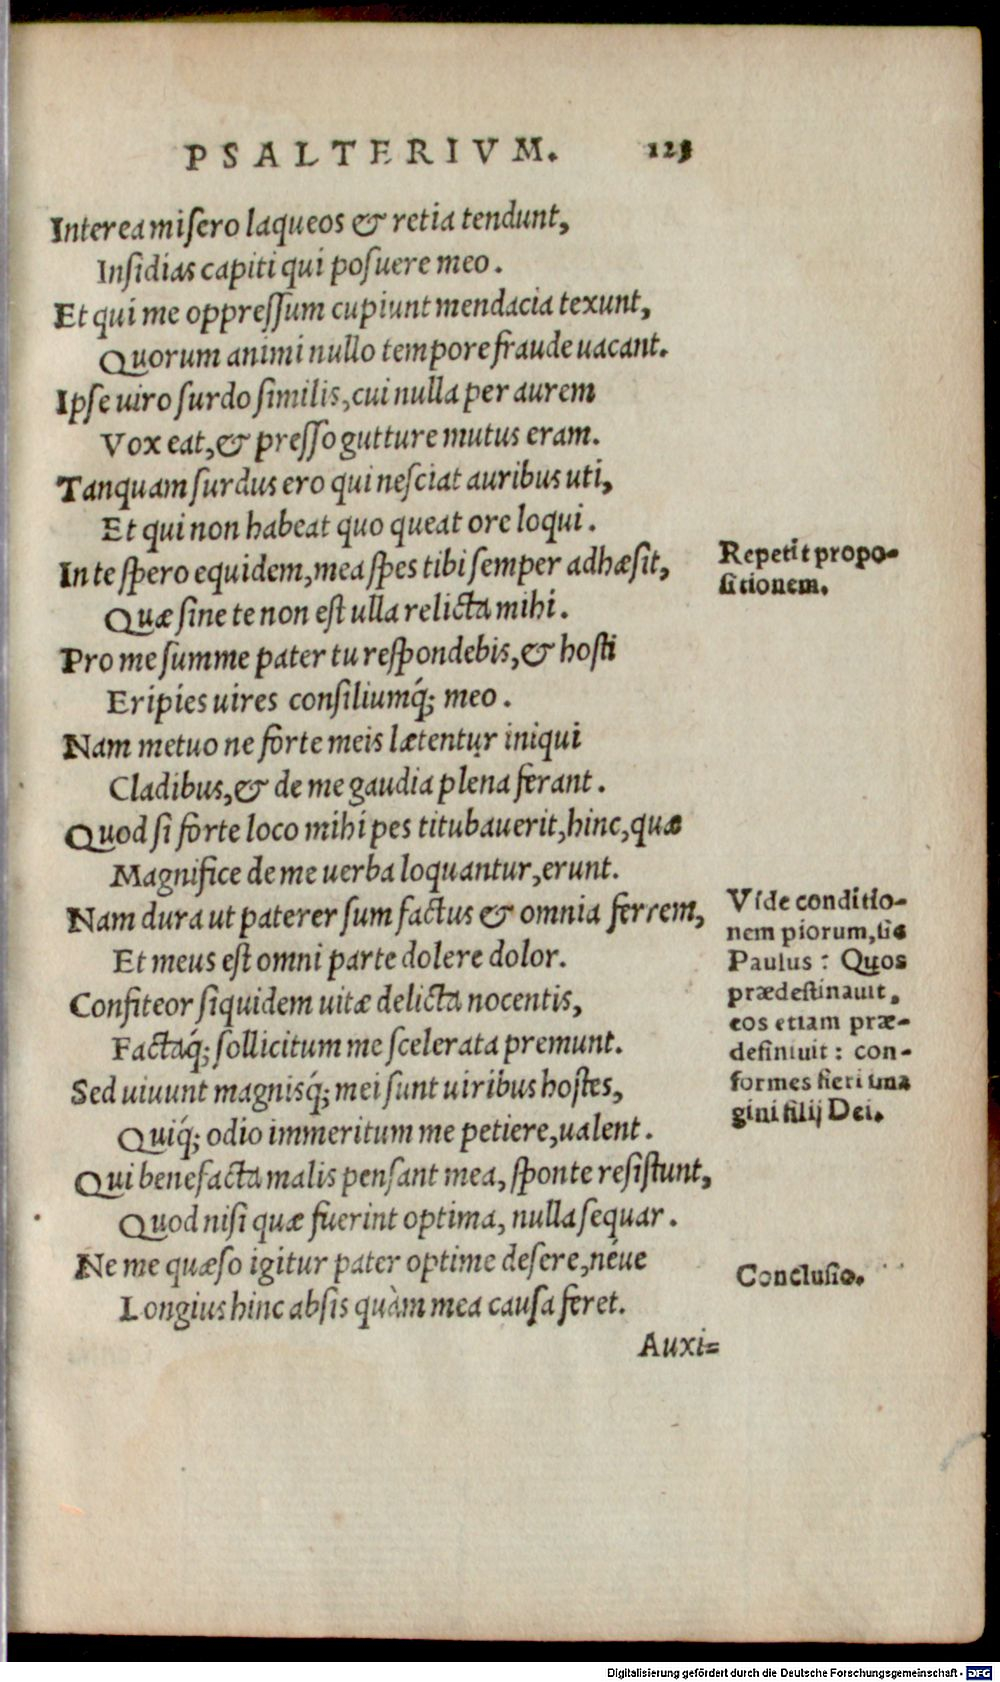 PSALTERIVM. 123
Interea misero laqueos & retia tendunt,
Insidias capiti qui posuere meo.
Et qui me oppressum cupiunt mendacia texunt,
Quorum animi nullo tempore fraude uacant.
Ipse uiro surdo similis, cui nulla per aurem
Vox eat, & presso gutture mutus eram.
Tanquam surdus ero qui nesciat auribus uti,
Et qui non habeat quo queat ore loqui.
In te spero equidem, mea spes tibi semper adhæsit,
Quæ sine te non est ulla relicta mihi.
Pro me summe pater tu respondebis, & hosti
Eripies uires consiliumq́; meo.
Nam metuo ne forte meis lætentur iniqui
Cladibus, & de me gaudia plena ferant.
Quod si forte loco mihi pes titubauerit, hinc, quæ
Magnifice de me uerba loquantur, erunt.
Nam dura ut paterer sum factus & omnia ferrem,
Et meus est omni parte dolere dolor.
Confiteor siquidem uitæ delicta nocentis,
Factaq́; sollicitum me scelerata premunt.
Sed uiuunt magnisq́; mei sunt uiribus hostes,
Quiq́; odio immeritum me petiere, ualent.
Qui benefacta malis pensant mea, sponte resistunt,
Quod nisi quæ fuerint optima, nulla sequar.
Ne me quæso igitur pater optime desere, néue
Longius hinc absis quàm mea causa feret.
Auxi=
Repetit propo-
sitionem.
Vide conditio-
nem piorum, sic
Paulus: Quos
prædestinauit,
eos etiam præ-
definiuit: con-
formes fieri ima
gini filij Dei.
Conclusio.
Digitalisierung gefördert durch die Deutsche Forschungsgemeinschaft - DFG